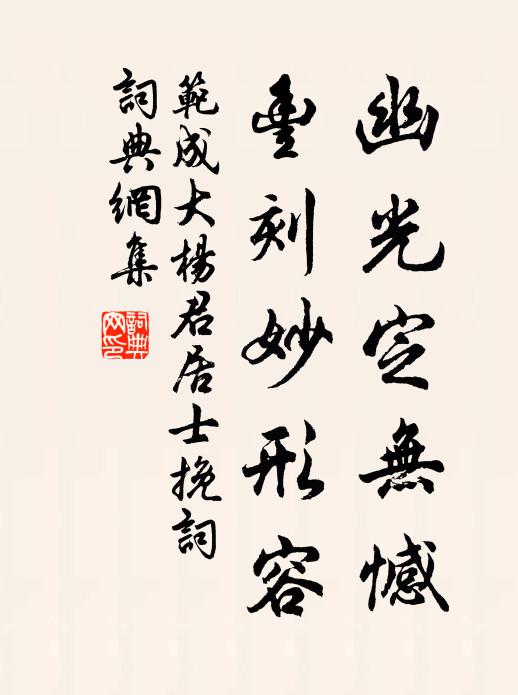 幽光定無憾
豊刻妙形容
範成大楊君居士挽詞
詞典網集
詞典網印